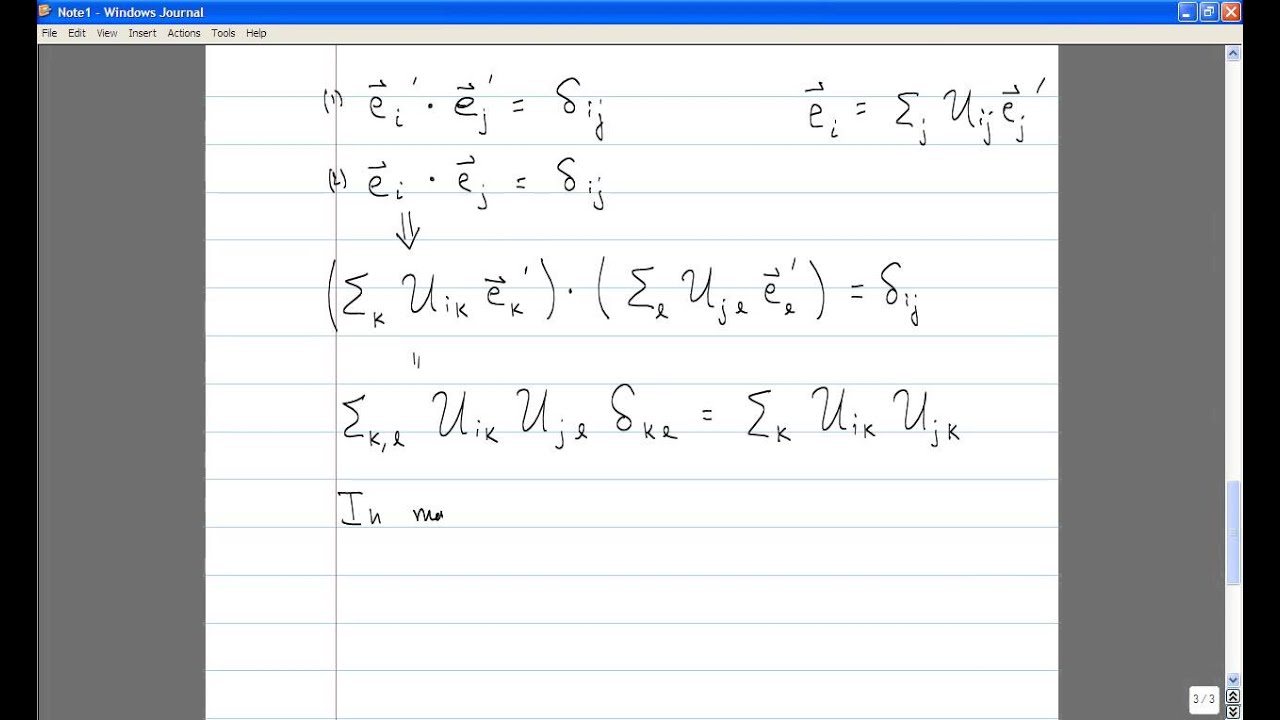 Note1 - Windows Journal
File Edit View Insert Actions Tools Help
(1) e⃗ᵢ′ · e⃗ⱼ′ = δᵢⱼ
e⃗ᵢ = Σⱼ Uᵢⱼ e⃗ⱼ′
(2) e⃗ᵢ · e⃗ⱼ = δᵢⱼ
⇓
(Σ_k U_ik e⃗_k′) · (Σ_ℓ U_jℓ e⃗_ℓ′) = δ_ij
"
Σ_k,ℓ U_ik U_jℓ δ_kℓ = Σ_k U_ik U_jk
In ma
3 / 3